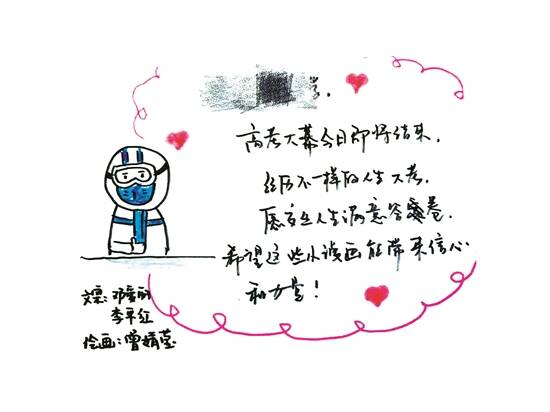 高考大幕今日即将结束，
经历不一样的人生大考，
愿交出人生满意答卷。
希望这些小漫画能带来信心
和力量！
文案：邓
李平红
绘画：曾婧莹